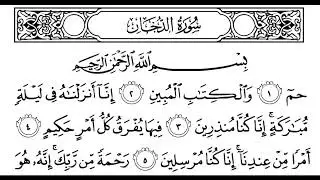 سُورَةُ الدُّخَانِ
بِسْمِ اللَّهِ الرَّحْمَٰنِ الرَّحِيمِ
حمٓ ١ وَالْكِتَابِ الْمُبِينِ ٢ إِنَّا أَنزَلْنَاهُ فِي لَيْلَةٍ
مُّبَارَكَةٍ ۚ إِنَّا كُنَّا مُنذِرِينَ ٣ فِيهَا يُفْرَقُ كُلُّ أَمْرٍ حَكِيمٍ ٤
أَمْرًا مِّنْ عِندِنَا ۚ إِنَّا كُنَّا مُرْسِلِينَ ٥ رَحْمَةً مِّن رَّبِّكَ ۚ إِنَّهُ هُوَ